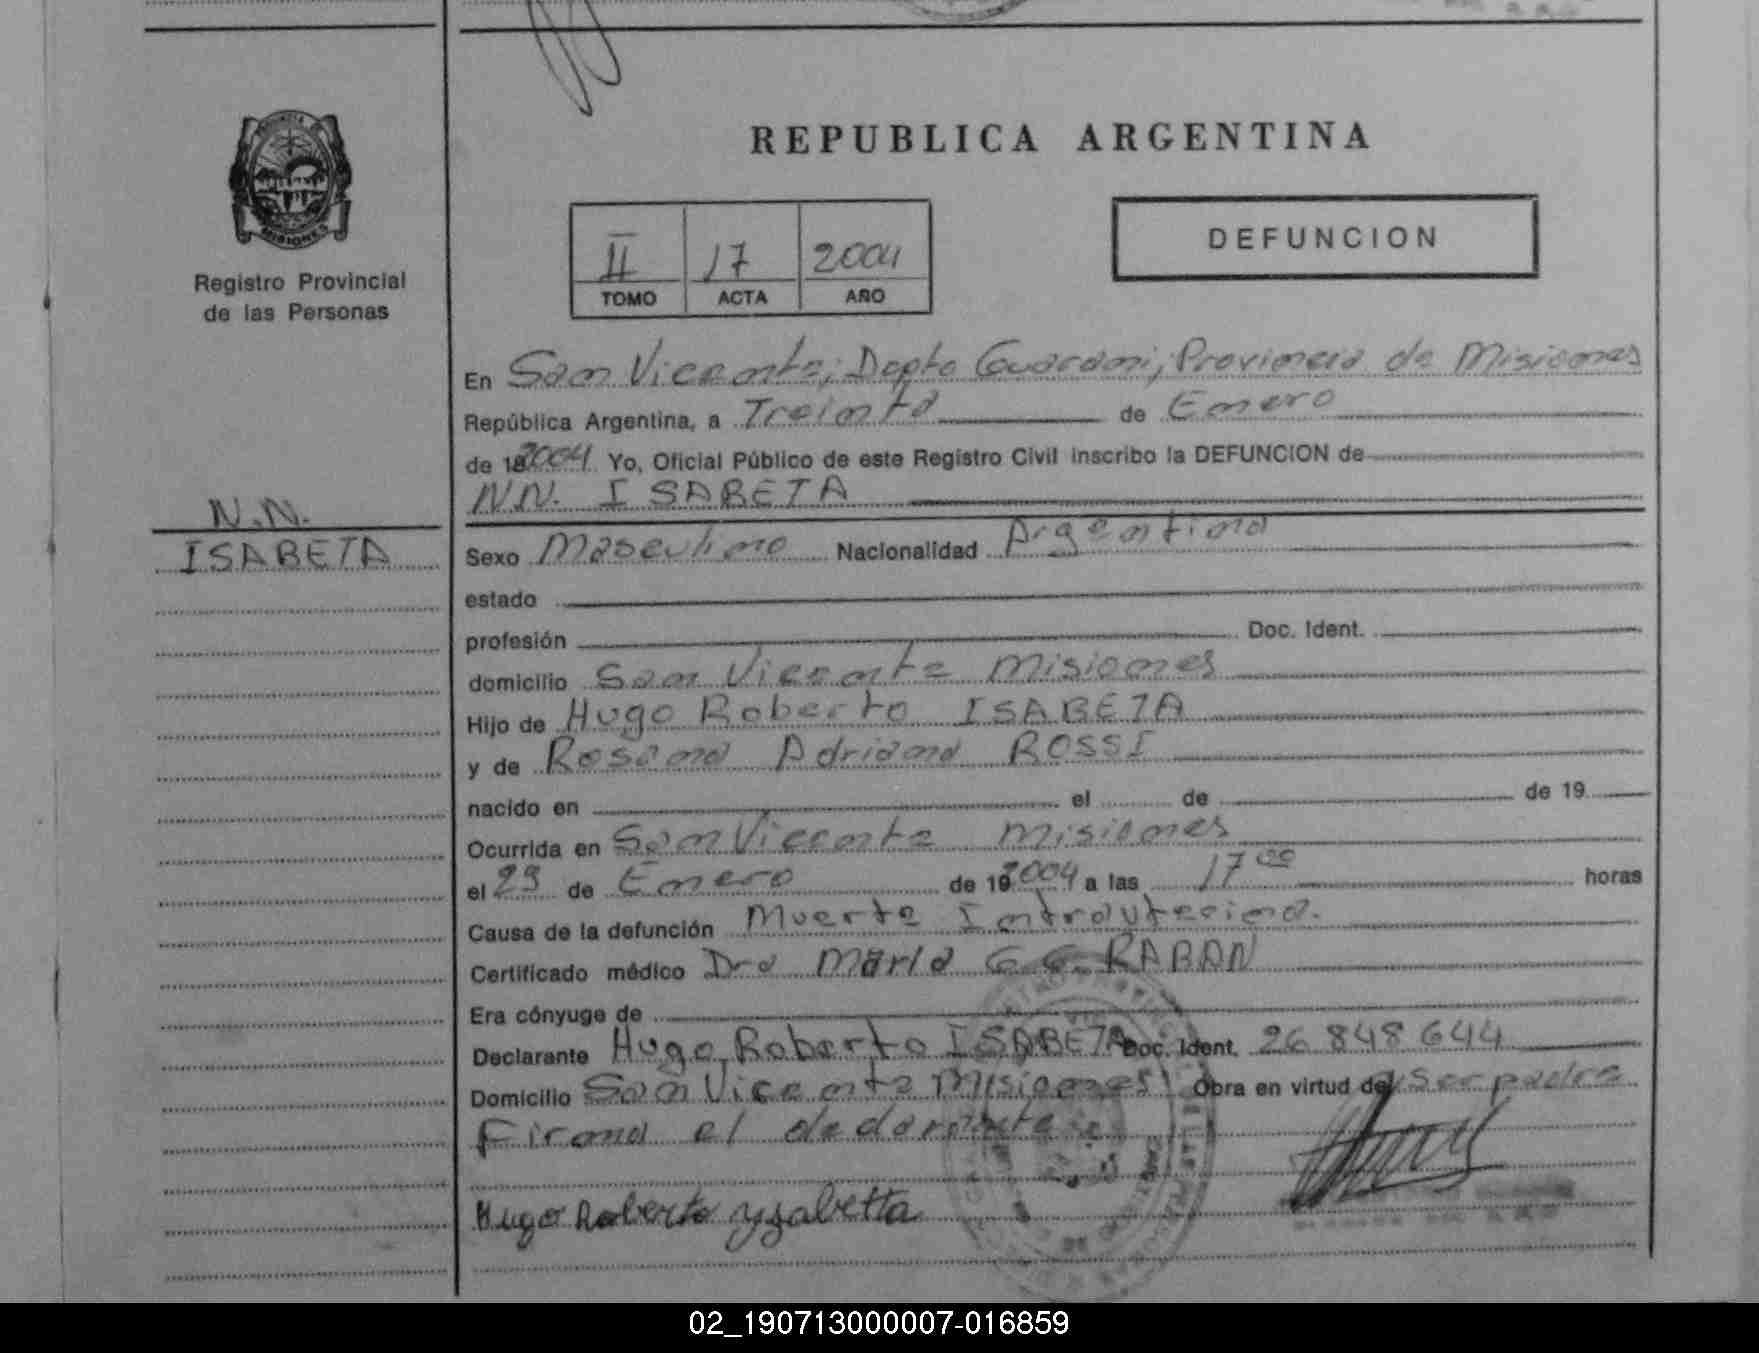 REPUBLICA ARGENTINA
MISIONES
Registro Provincial
de las Personas
II 17 2004
TOMO ACTA AÑO
DEFUNCION
En San Vicente, Depto Guarani, Provincia de Misiones
República Argentina, a Treinta de Enero
de 2004 Yo, Oficial Público de este Registro Civil inscribo la DEFUNCION de
NN. ISABETA
N.N.
ISABETA
Sexo Masculino Nacionalidad Argentina
estado
profesión Doc. Ident.
domicilio San Vicente Misiones
Hijo de Hugo Roberto ISABETA
y de Rosana Adriana ROSSI
nacido en el de de 19
Ocurrida en San Vicente Misiones
el 29 de Enero de 2004 a las 17 00 horas
Causa de la defunción Muerte Intrauterina.
Certificado médico Dra Maria G. G. RABAN
Era cónyuge de
Declarante Hugo Roberto ISABETA Doc. Ident. 26 848 644
Domicilio San Vicente Misiones Obra en virtud de ser padre
Firma el declarante
Hugo Roberto ysabetta
02_190713000007-016859